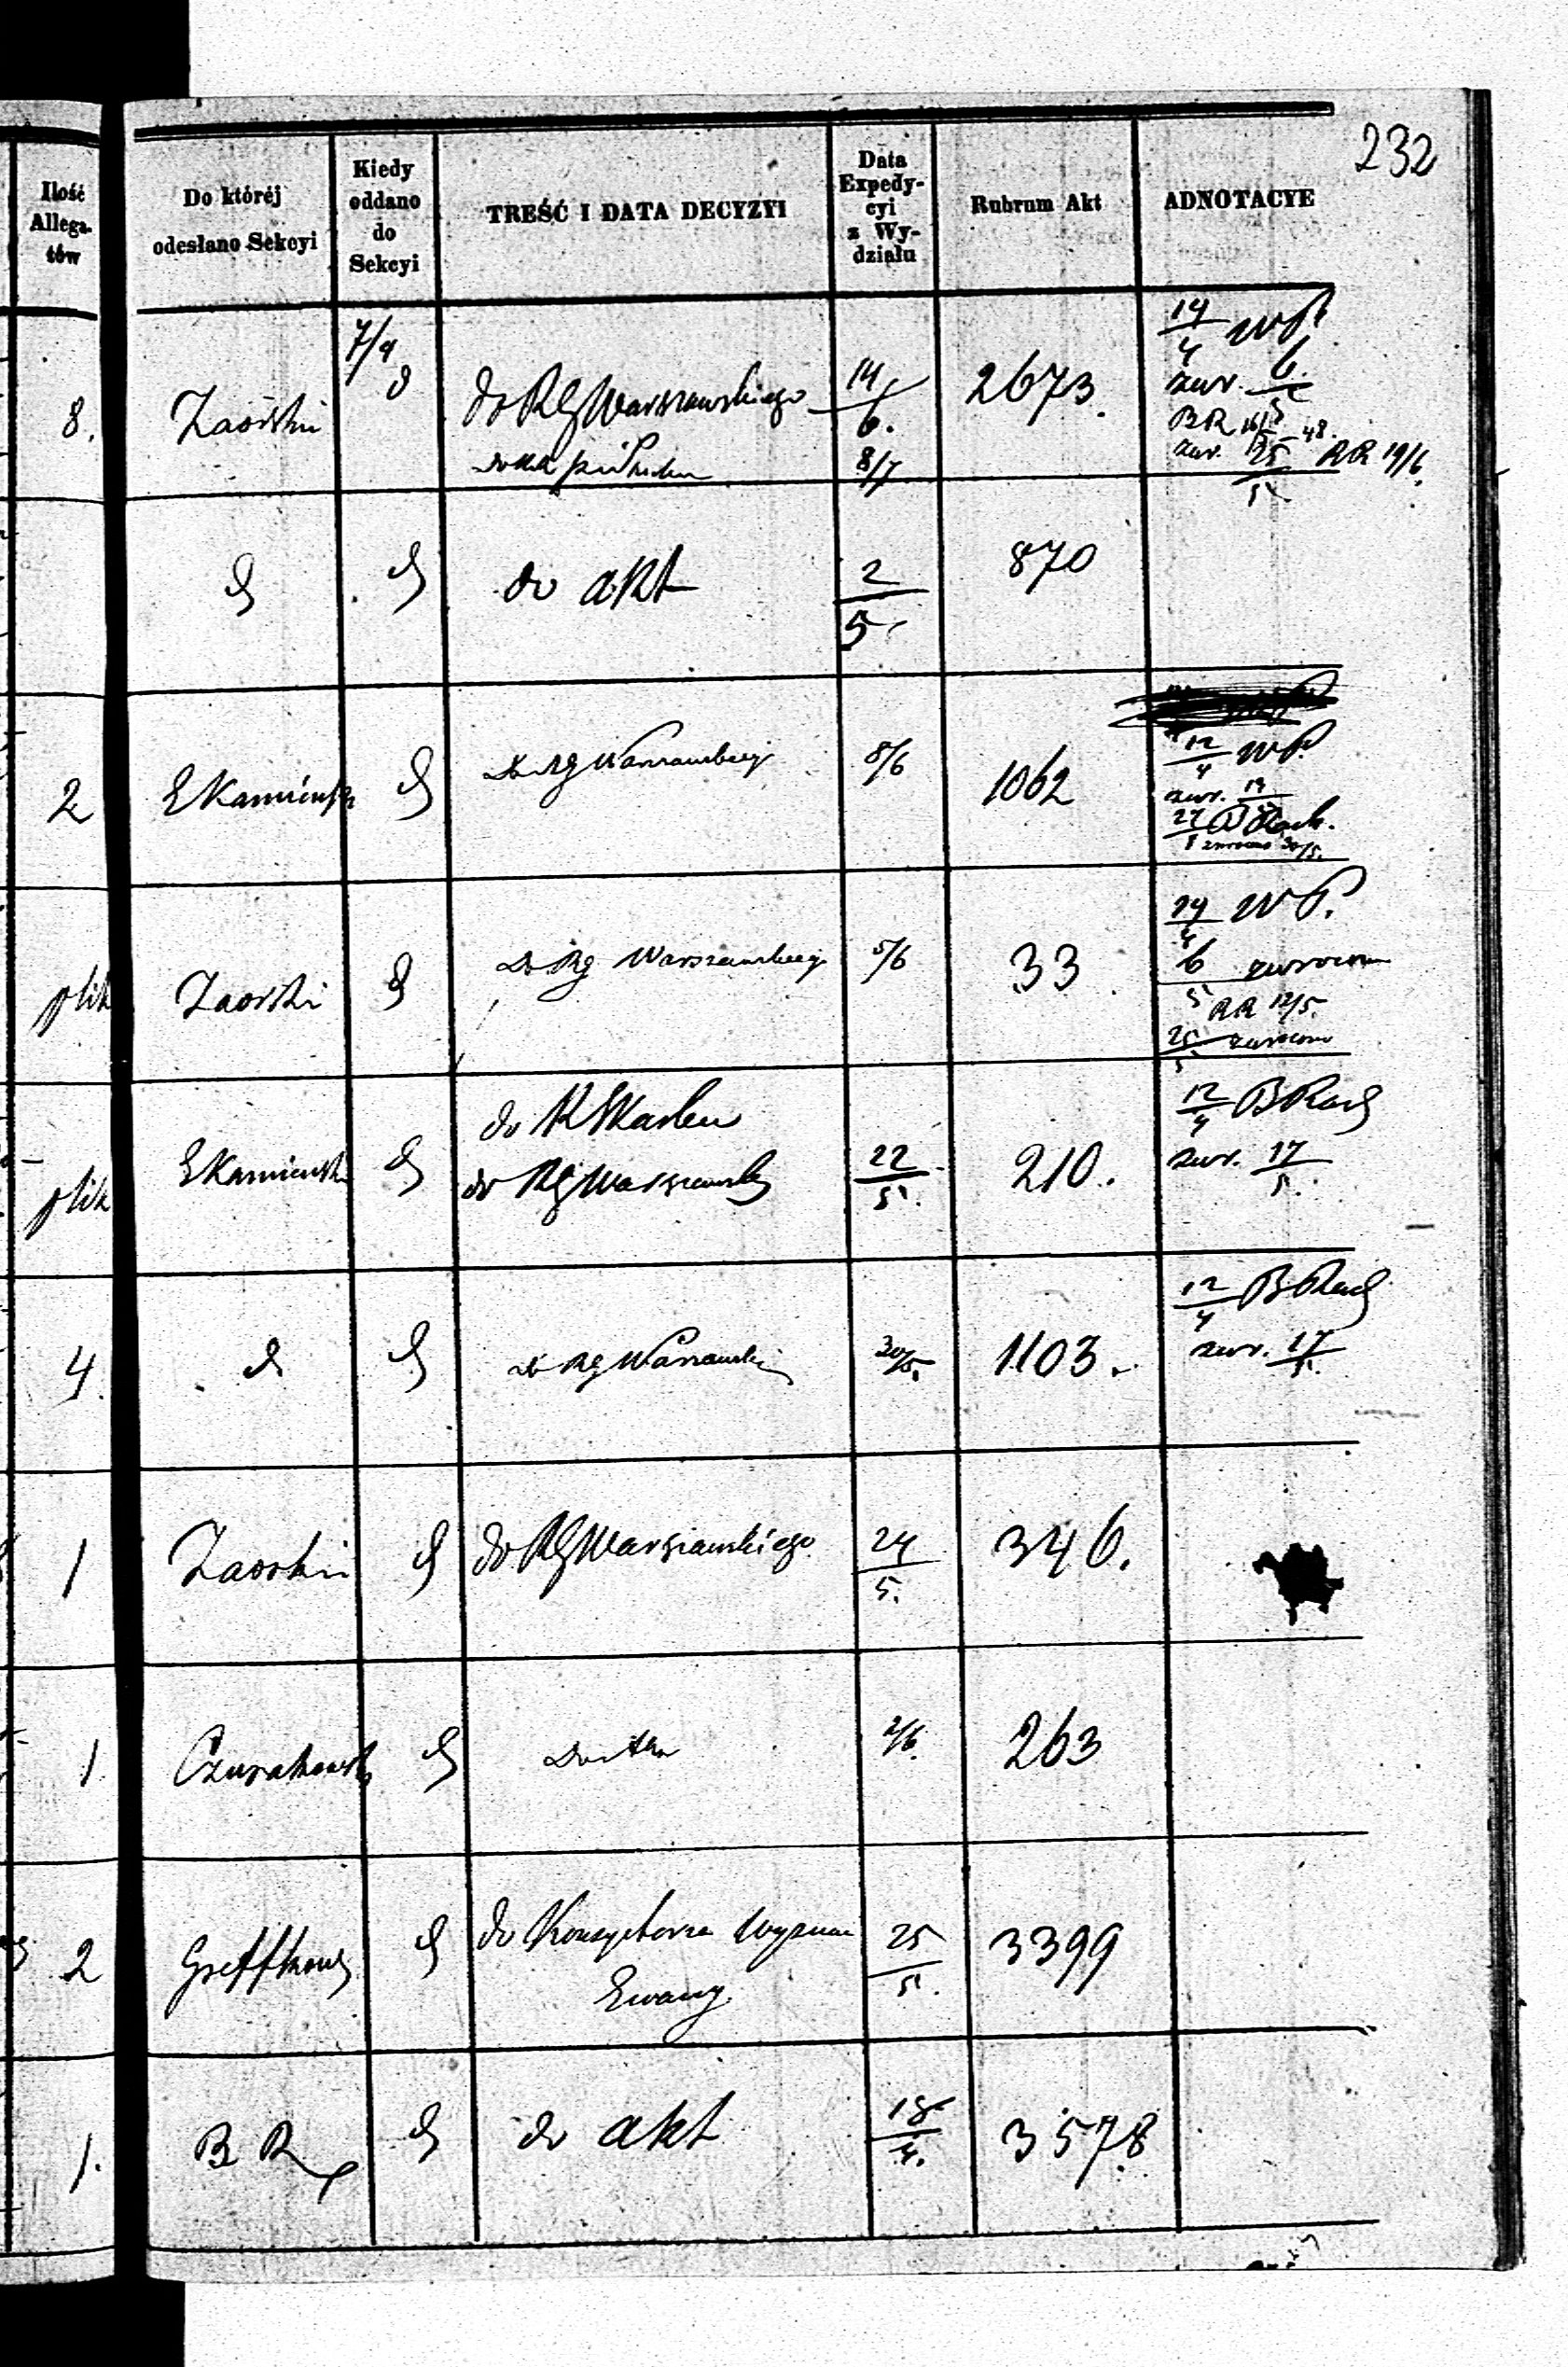 232
Ilość Allega-tów | Do któréj odesłano Sekcyi | Kiedy oddano do Sekcyi | TREŚĆ I DATA DECYZYI | Data Expedy-cyi z Wy-działu | Rubrum Akt | ADNOTACYE
8. | Zaorski | 7/4 | do RG Warszawskiego | 14/6. 8/7 | 2673. | 14/4 WP.
zwr. 6./5
BR 16/5 48.
zwr. 25/5 RR 19/6.
do akt | 2/5 | 870
2 | EKamińsk | Do RG Warszawskiego | 8/6 | 1062 | 12/4 WP.
zwr.
zwrocono 30/5.
plik | Zaorski | Do RG Warszawskiego | 5/6 | 33 | 14/4 WP.
6/5 zwrocono
RR 12/5.
25/5 zwrocono
plik | EKamiński | do RG Warszawsk | 22/5. | 210. | 12/4 BRach
zwr. 17/5.
4. | Do RG Warszawski | 30/5. | 1103. | 12/4 BRach
zwr. 17/5.
1 | Zaorski | do RG Warszawskiego | 24/5. | 346.
1 | Do Akt | 2/6. | 263
2 | do Konsystorza Wyznan
Ewang. | 25/5. | 3399
1. | B R | do akt | 18/4. | 3578